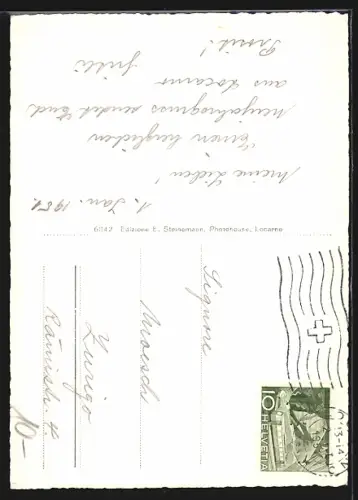 1. Jan. 1951.
Meine Lieben!
Einen herzlichen
Neujahrsgruss sendet Euch
aus Locarno
Prosit!
6042 Edizione E. Steinemann, Photohaus, Locarno
Signore
Zurigo
Rämistr. 4
10-
10
HELVETIA